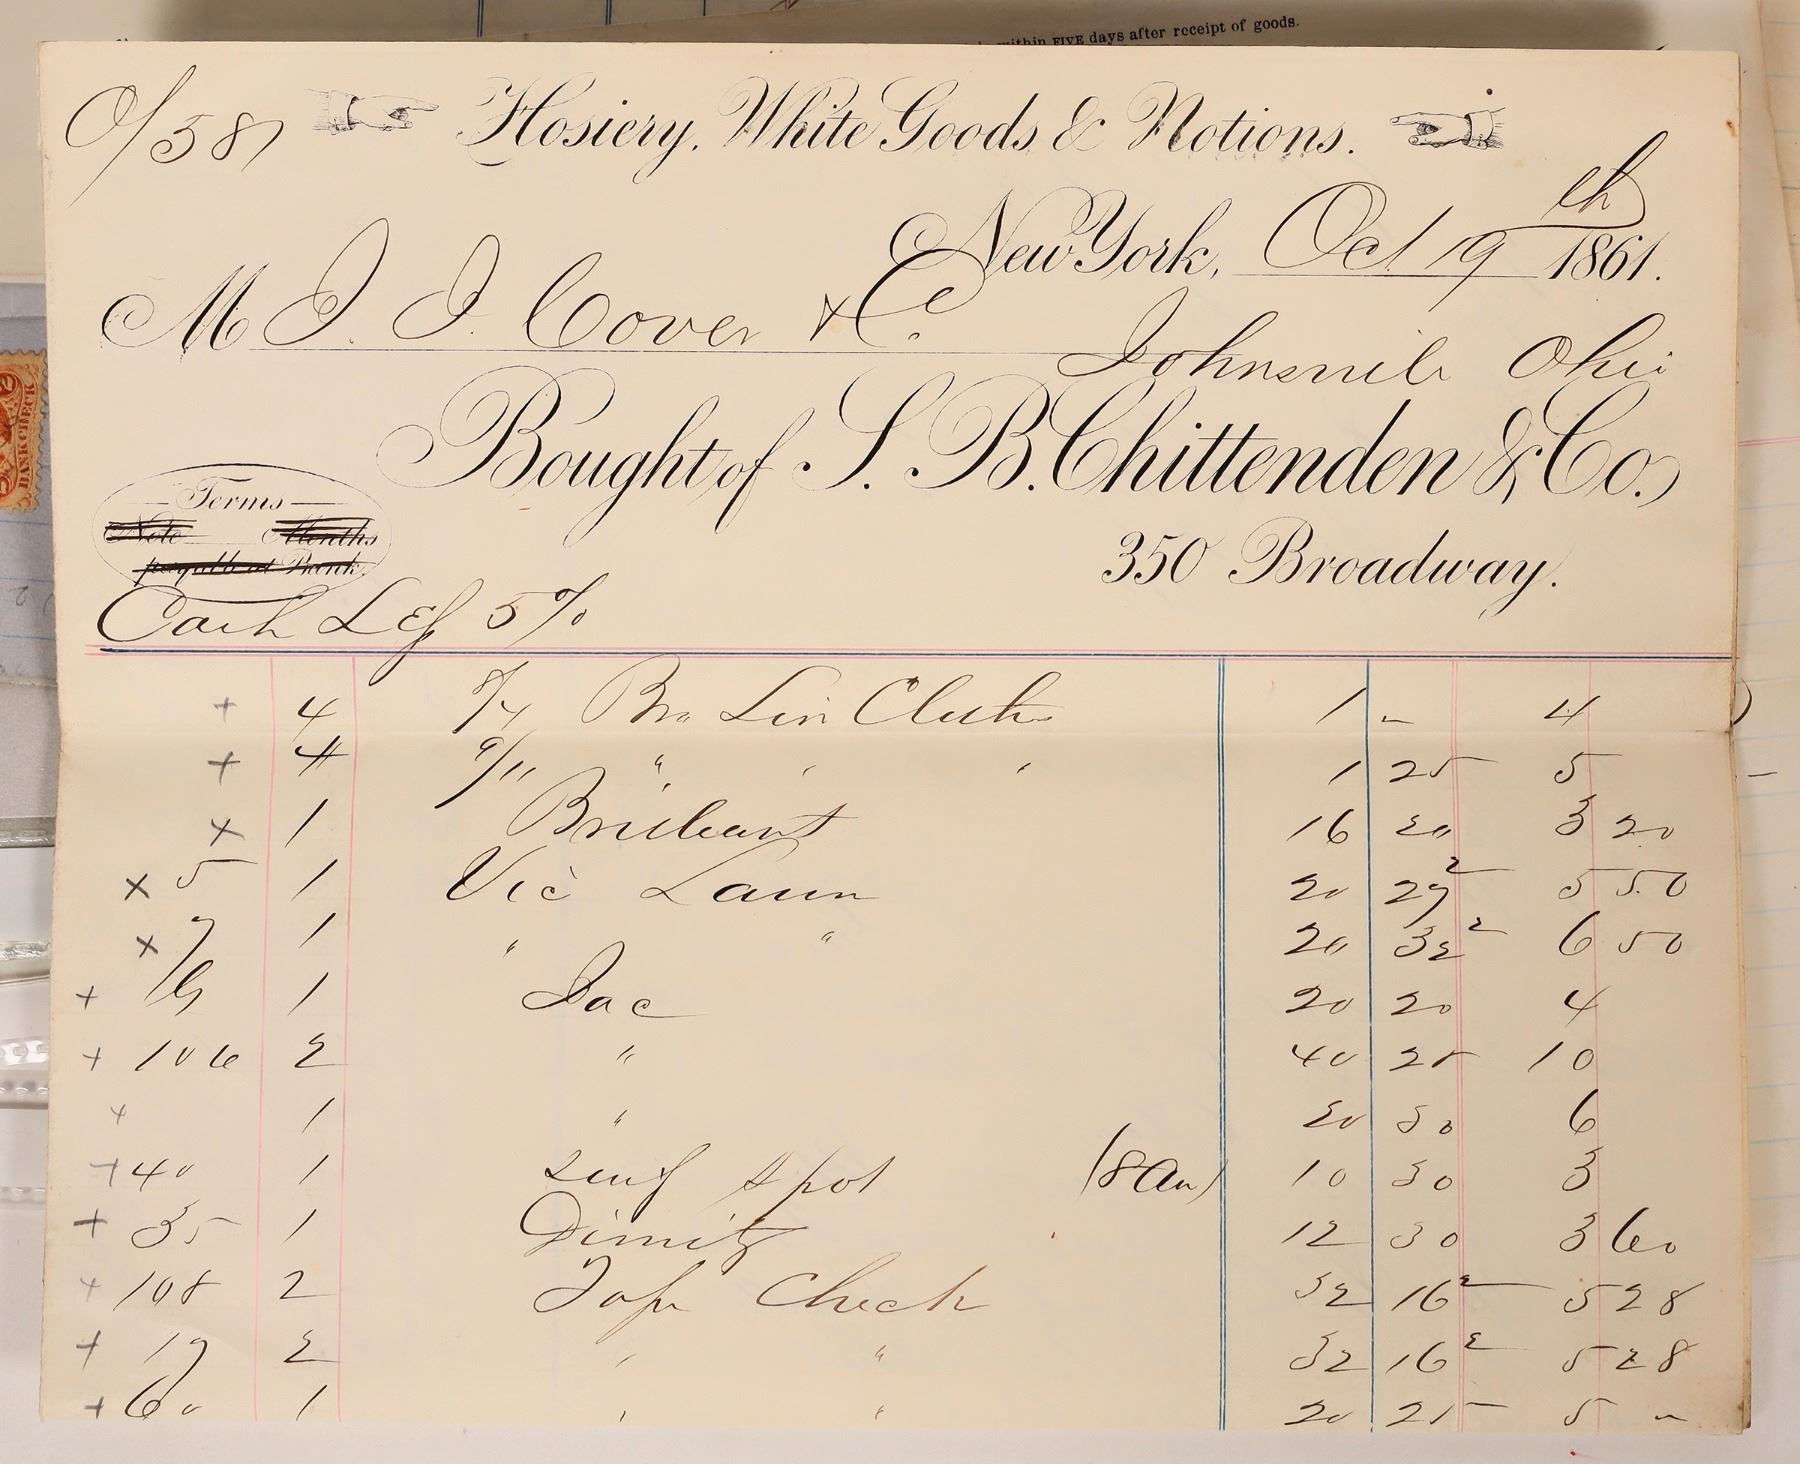 within FIVE days after receipt of goods.
BANK CHECK
O/587 Hosiery, White Goods & Notions.
New York, Oct 19th 1861.
M J. J. Cover & Co.
Johnsvile Ohio
Bought of S. B. Chittenden & Co.,
350 Broadway.
Terms
Note Months
payable at Bank.
Cash Less 5%
+ 4 8/4 Bro Lin Cloth 1 - 4
+ 4 9/" " " " 1 25 5
x 1 Brilliant 16 20 3 20
x 5 1 Vic Lawn 20 27 2 5 50
x 7 1 " " 20 32 2 6 50
+ 1 Jac 20 20 4
+ 106 2 " 40 25 10
+ 1 " 20 30 6
+ 40 1 spot 10 30 3
+ 35 1 Dimity 12 30 3 60
+ 108 2 Check 32 16 2 5 28
+ 17 2 " " 32 16 2 5 28
+ 60 1 " " 20 25 5 -